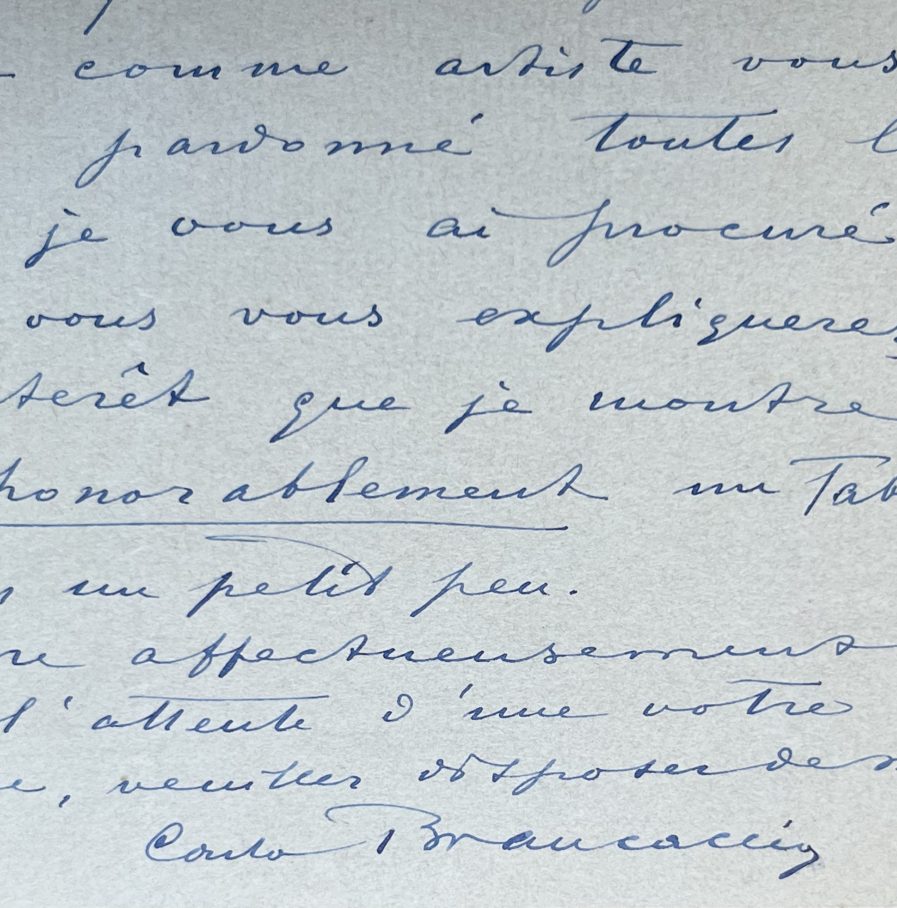 comme artiste vous
pardonné toutes l
je vous ai procuré
vous vous expliquere
terêt que je montre
honorablement un Tab
un petit peu.
re affectueusement
l'attente d'une votre
e, veuillez disposer de
Carlo Brancaccio